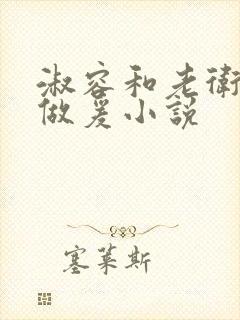 淑容和老衛
做爰小說
塞萊斯